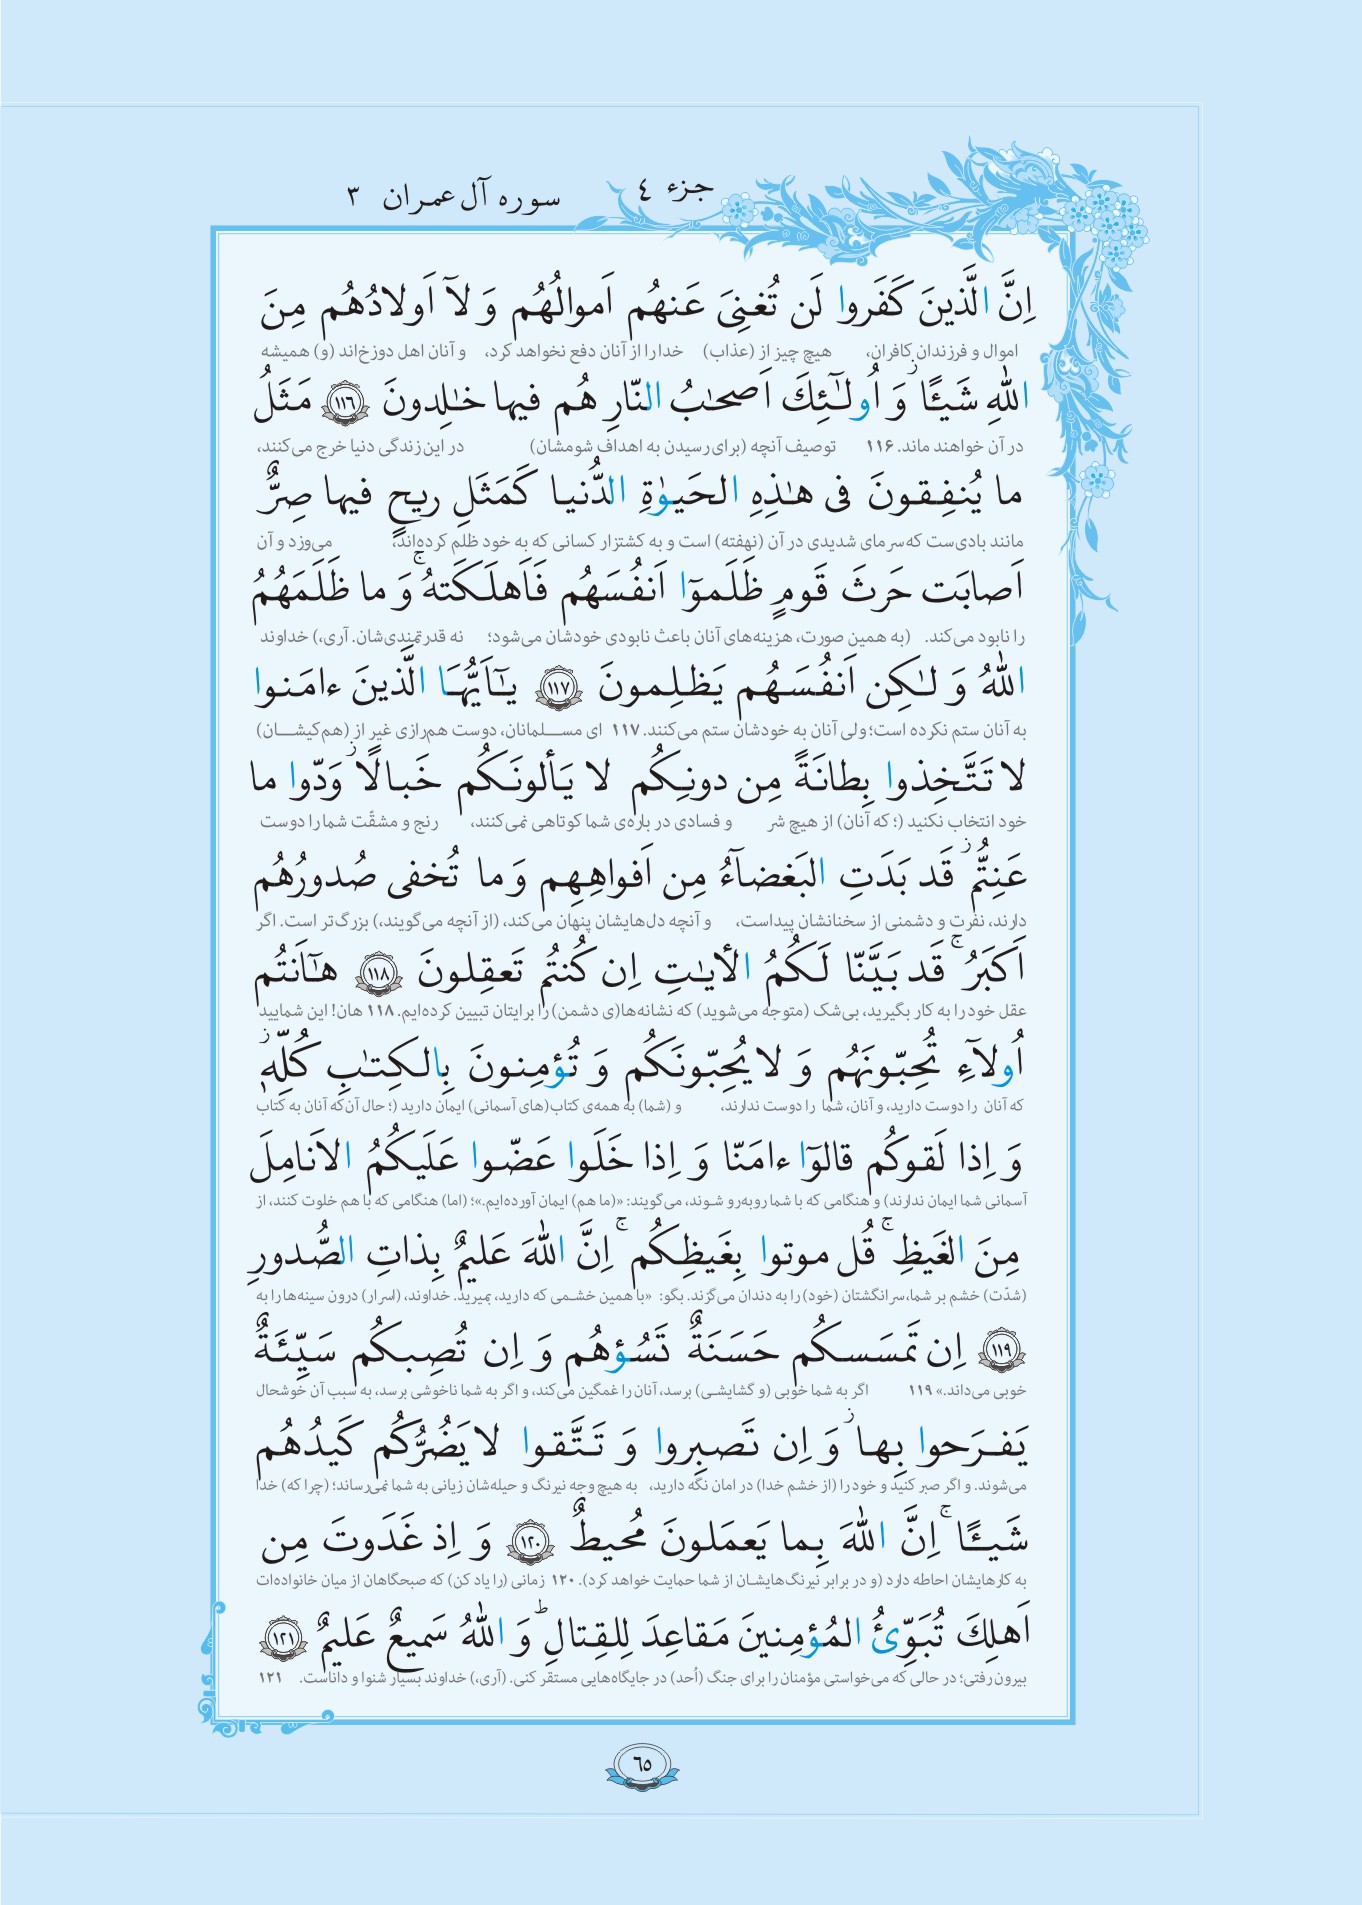 جزء ٤
سوره آل عمران ٣
اِنَّ الَّذینَ كَفَروا لَن تُغنِیَ عَنهُم اَموالُهُم وَ لاۤ اَولادُهُم مِنَ
اموال و فرزندان کافران، هیچ چیز از (عذاب) خدا را از آنان دفع نخواهد کرد، و آنان اهل دوزخ‌اند (و) همیشه
اللهِ شَیـًٔا ۖز وَ اُولـٰۤئِكَ اَصحـٰبُ النّارِ هُم فیها خـٰلِدونَ ﴿١١٦﴾ مَثَلُ
در آن خواهند ماند. ۱۱۶ توصیف آنچه (برای رسیدن به اهداف شومشان) در این زندگی دنیا خرج می‌کنند،
ما یُنفِقونَ فی هـٰذِهِ الحَیوٰةِ الدُّنیا كَمَثَلِ ریحٍ فیها صِرٌّ
مانند بادی‌ست که سرمای شدیدی در آن (نهفته) است و به کشتزار کسانی که به خود ظلم کرده‌اند، می‌وزد و آن
اَصابَت حَرثَ قَومٍ ظَلَموۤا اَنفُسَهُم فَاَهلَكَتهُ ۚ وَ ما ظَلَمَهُمُ
را نابود می‌کند. (به همین صورت، هزینه‌های آنان باعث نابودی خودشان می‌شود؛ نه قدرتمندی‌شان. آری،) خداوند
اللهُ وَ لـٰكِن اَنفُسَهُم یَظلِمونَ ﴿١١٧﴾ یـٰۤاَیُّهَا الَّذینَ ءامَنوا
به آنان ستم نکرده است؛ ولی آنان به خودشان ستم می‌کنند. ۱۱۷ ای مســلمانان، دوست هم‌رازی غیر از (هم‌کیشــان)
لا تَتَّخِذوا بِطانَةً مِن دونِكُم لا یَألونَكُم خَبالًا ز وَدّوا ما
خود انتخاب نکنید (؛ که آنان) از هیچ شر و فسادی در باره‌ی شما کوتاهی نمی‌کنند، رنج و مشقّت شما را دوست
عَنِتُّم ز قَد بَدَتِ البَغضاۤءُ مِن اَفواهِهِم وَ ما تُخفی صُدورُهُم
دارند، نفرت و دشمنی از سخنانشان پیداست، و آنچه دل‌هایشان پنهان می‌کند، (از آنچه می‌گویند،) بزرگ‌تر است. اگر
اَكبَرُ ۚ قَد بَیَّنّا لَكُمُ الأیـٰتِ اِن كُنتُم تَعقِلونَ ﴿١١٨﴾ هـٰۤاَنتُم
عقل خود را به کار بگیرید، بی‌شک (متوجه می‌شوید) که نشانه‌ها(ی دشمن) را برایتان تبیین کرده‌ایم. ۱۱۸ هان! این شمایید
اُولاۤءِ تُحِبّونَهُم وَ لا یُحِبّونَكُم وَ تُؤمِنونَ بِالكِتـٰبِ كُلِّهٖ ز
که آنان را دوست دارید، و آنان، شما را دوست ندارند، و (شما) به همه‌ی کتاب(های آسمانی) ایمان دارید (؛ حال آن‌که آنان به کتاب
وَ اِذا لَقوكُم قالوۤا ءامَنّا وَ اِذا خَلَوا عَضّوا عَلَیكُمُ الاَنامِلَ
آسمانی شما ایمان ندارند) و هنگامی که با شما روبه‌رو شوند، می‌گویند: «(ما هم) ایمان آورده‌ایم.»؛ (اما) هنگامی که با هم خلوت کنند، از
مِنَ الغَیظِ ۚ قُل موتوا بِغَیظِكُم ۚ اِنَّ اللهَ عَلیمٌ بِذاتِ الصُّدورِ
(شدّت) خشم بر شما، سرانگشتان (خود) را به دندان می‌گزند. بگو: «با همین خشمی که دارید، بمیرید. خداوند، (اسرار) درون سینه‌ها را به
﴿١١٩﴾ اِن تَمسَسكُم حَسَنَةٌ تَسُؤهُم وَ اِن تُصِبكُم سَیِّئَةٌ
خوبی می‌داند.» ۱۱۹ اگر به شما خوبی (و گشایشی) برسد، آنان را غمگین می‌کند، و اگر به شما ناخوشی برسد، به سبب آن خوشحال
یَفرَحوا بِها ز وَ اِن تَصبِروا وَ تَتَّقوا لا یَضُرُّكُم كَیدُهُم
می‌شوند. و اگر صبر کنید و خود را (از خشم خدا) در امان نگه دارید، به هیچ وجه نیرنگ و حیله‌شان زیانی به شما نمی‌رساند؛ (چرا که) خدا
شَیـًٔا ۚ اِنَّ اللهَ بِما یَعمَلونَ مُحیطٌ ﴿١٢٠﴾ وَ اِذ غَدَوتَ مِن
به کارهایشان احاطه دارد (و در برابر نیرنگ‌هایشان از شما حمایت خواهد کرد). ۱۲۰ زمانی (را یاد کن) که صبحگاهان از میان خانواده‌ات
اَهلِكَ تُبَوِّئُ المُؤمِنینَ مَقاعِدَ لِلقِتالِ ط وَ اللهُ سَمیعٌ عَلیمٌ ﴿١٢١﴾
بیرون رفتی؛ در حالی که می‌خواستی مؤمنان را برای جنگ (اُحد) در جایگاه‌هایی مستقر کنی. (آری،) خداوند بسیار شنوا و داناست. ۱۲۱
٦٥